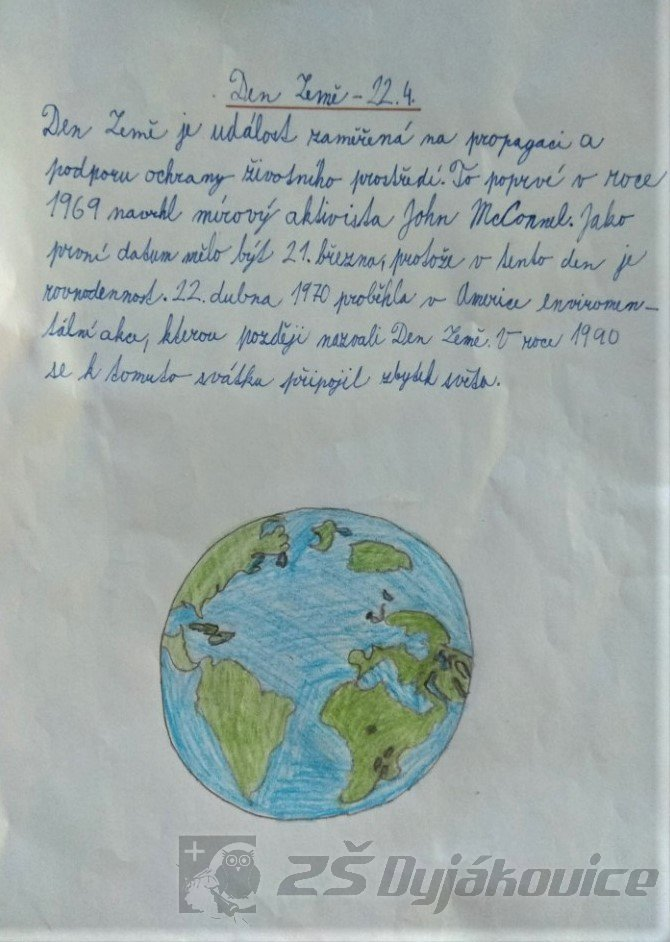 Den Země - 22.4.
Den Země je událost zaměřená na propagaci a
podporu ochrany životního prostředí. To poprvé v roce
1969 navrhl mírový aktivista John McConnel. Jako
první datum mělo být 21. března, protože v tento den je
rovnodennost. 22. dubna 1970 proběhla v Americe enviromen-
tální akce, kterou později nazvali Den Země. V roce 1990
se k tomuto svátku připojil zbytek světa.
ZŠ Dyjákovice